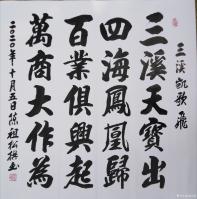 三溪凱歌飛
三溪天寶出
四海鳳凰歸
百業俱興起
萬商大作為
二〇二〇年十月五日陳祖松撰书